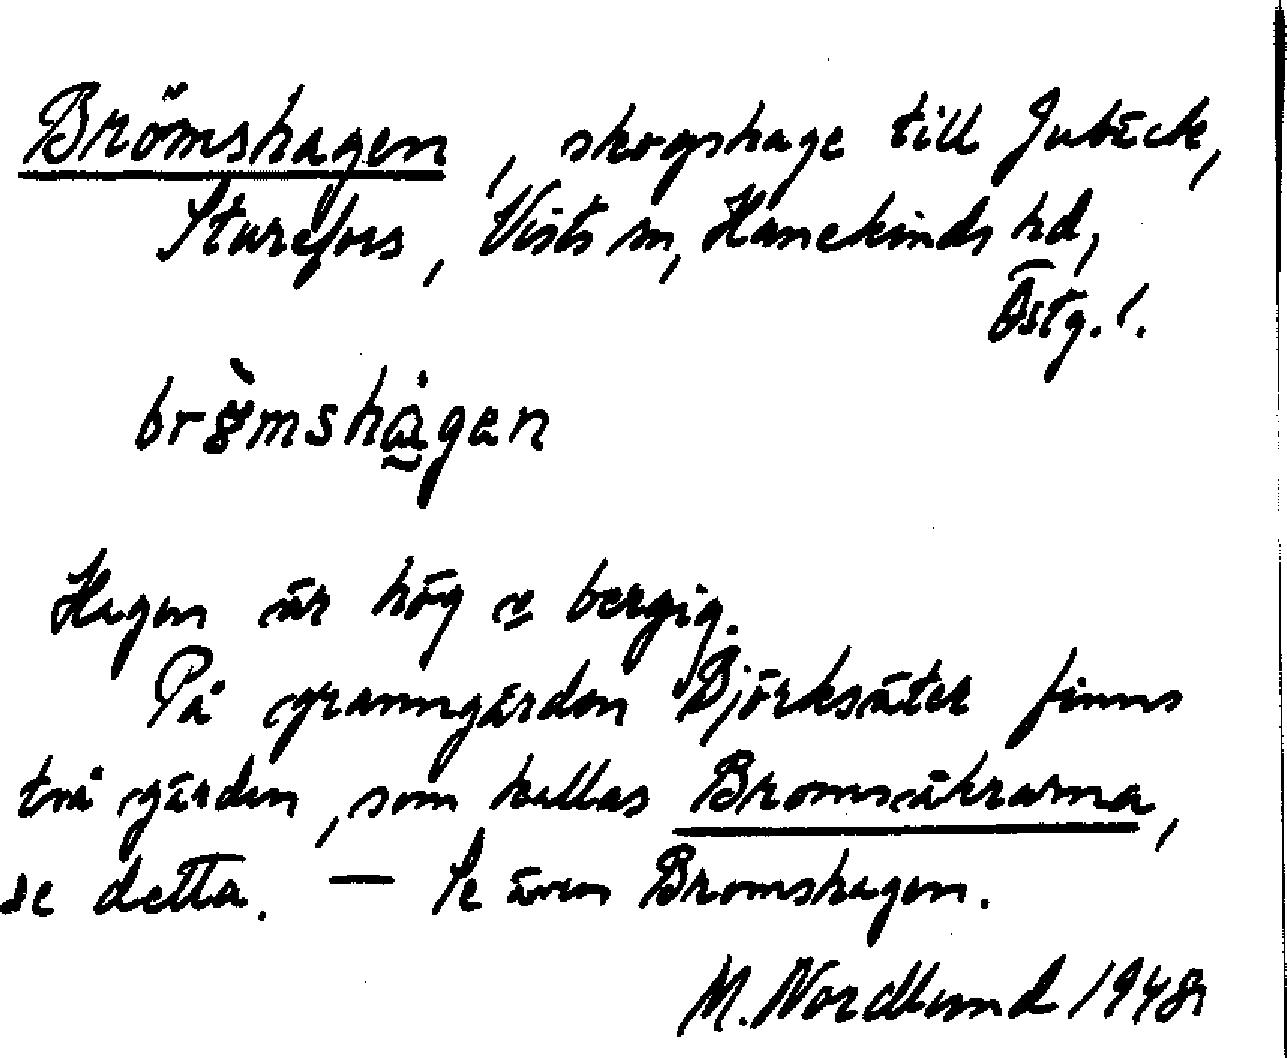 Brömshagen, skogshage till Jubäck,
Sturefors, Vists sn, Hanekinds hd,
Östg. l.
brömshagen
Hagen är hög o bergig.
På granngården Björksäter finns
två gärden, som kallas Bromsåkrarna,
se detta. — Se även Bromshagen.
M. Nordlund 1948